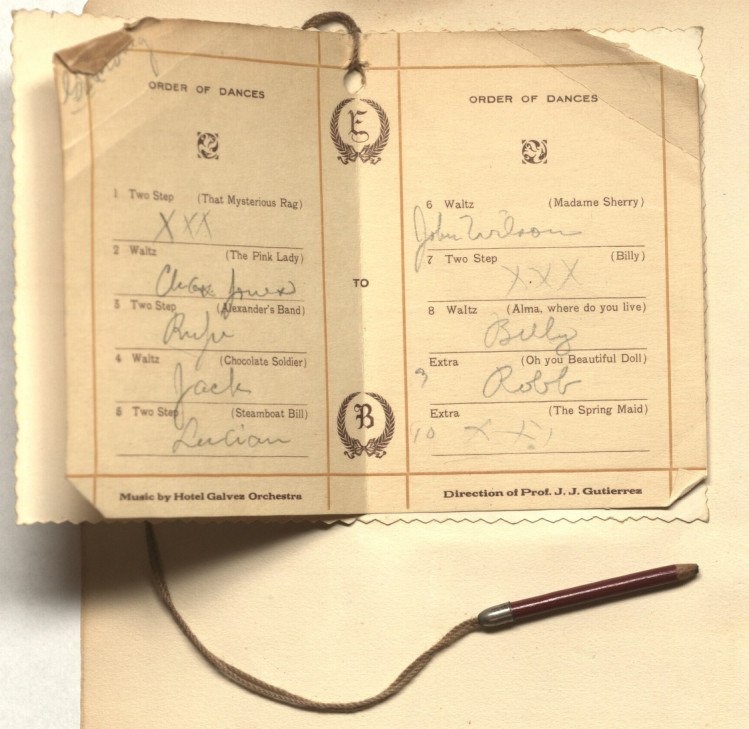 ORDER OF DANCES
1 Two Step (That Mysterious Rag)
XXX
2 Waltz (The Pink Lady)
Jones
3 Two Step (Alexander's Band)
4 Waltz (Chocolate Soldier)
Jack
5 Two Step (Steamboat Bill)
Lucian
Music by Hotel Galvez Orchestra
E
TO
B
ORDER OF DANCES
6 Waltz (Madame Sherry)
John Wilson
7 Two Step (Billy)
XXX
8 Waltz (Alma, where do you live)
Billy
Extra (Oh you Beautiful Doll)
9 Robb
Extra (The Spring Maid)
10 X X
Direction of Prof. J. J. Gutierrez